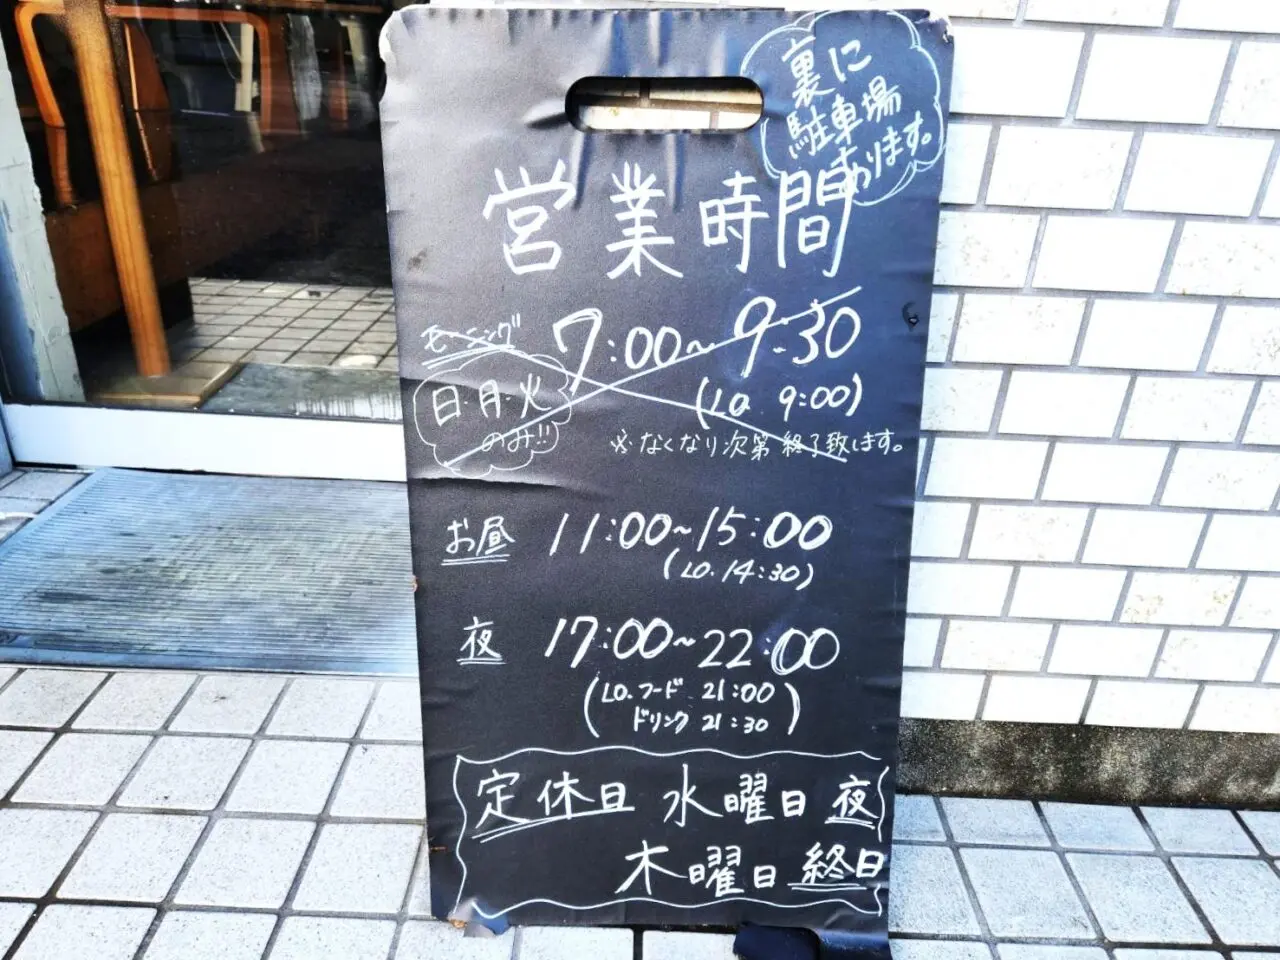 裏に
駐車場
あります。
営業時間
モーニング 7:00~9:30
日・月・火
のみ!!
(LO 9:00)
※なくなり次第終了致します。
お昼 11:00~15:00
(LO. 14:30)
夜 17:00~22:00
(LO. フード 21:00
ドリンク 21:30)
定休日 水曜日夜
木曜日終日